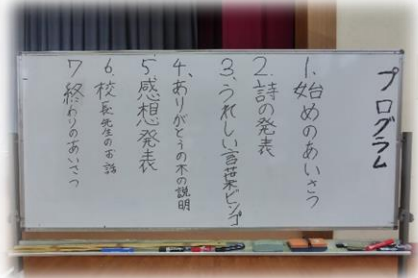 プログラム
1.始めのあいさつ
2.詩の発表
3.うれしい言葉ビンゴ
4.ありがとうの木の説明
5.感想発表
6.校長先生のお話
7.終わりのあいさつ